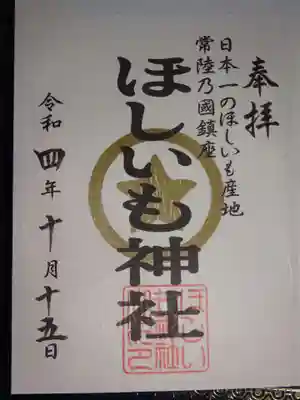 奉拝
日本一のほしいも産地
常陸乃國鎮座
ほしいも神社
令和四年十月十五日